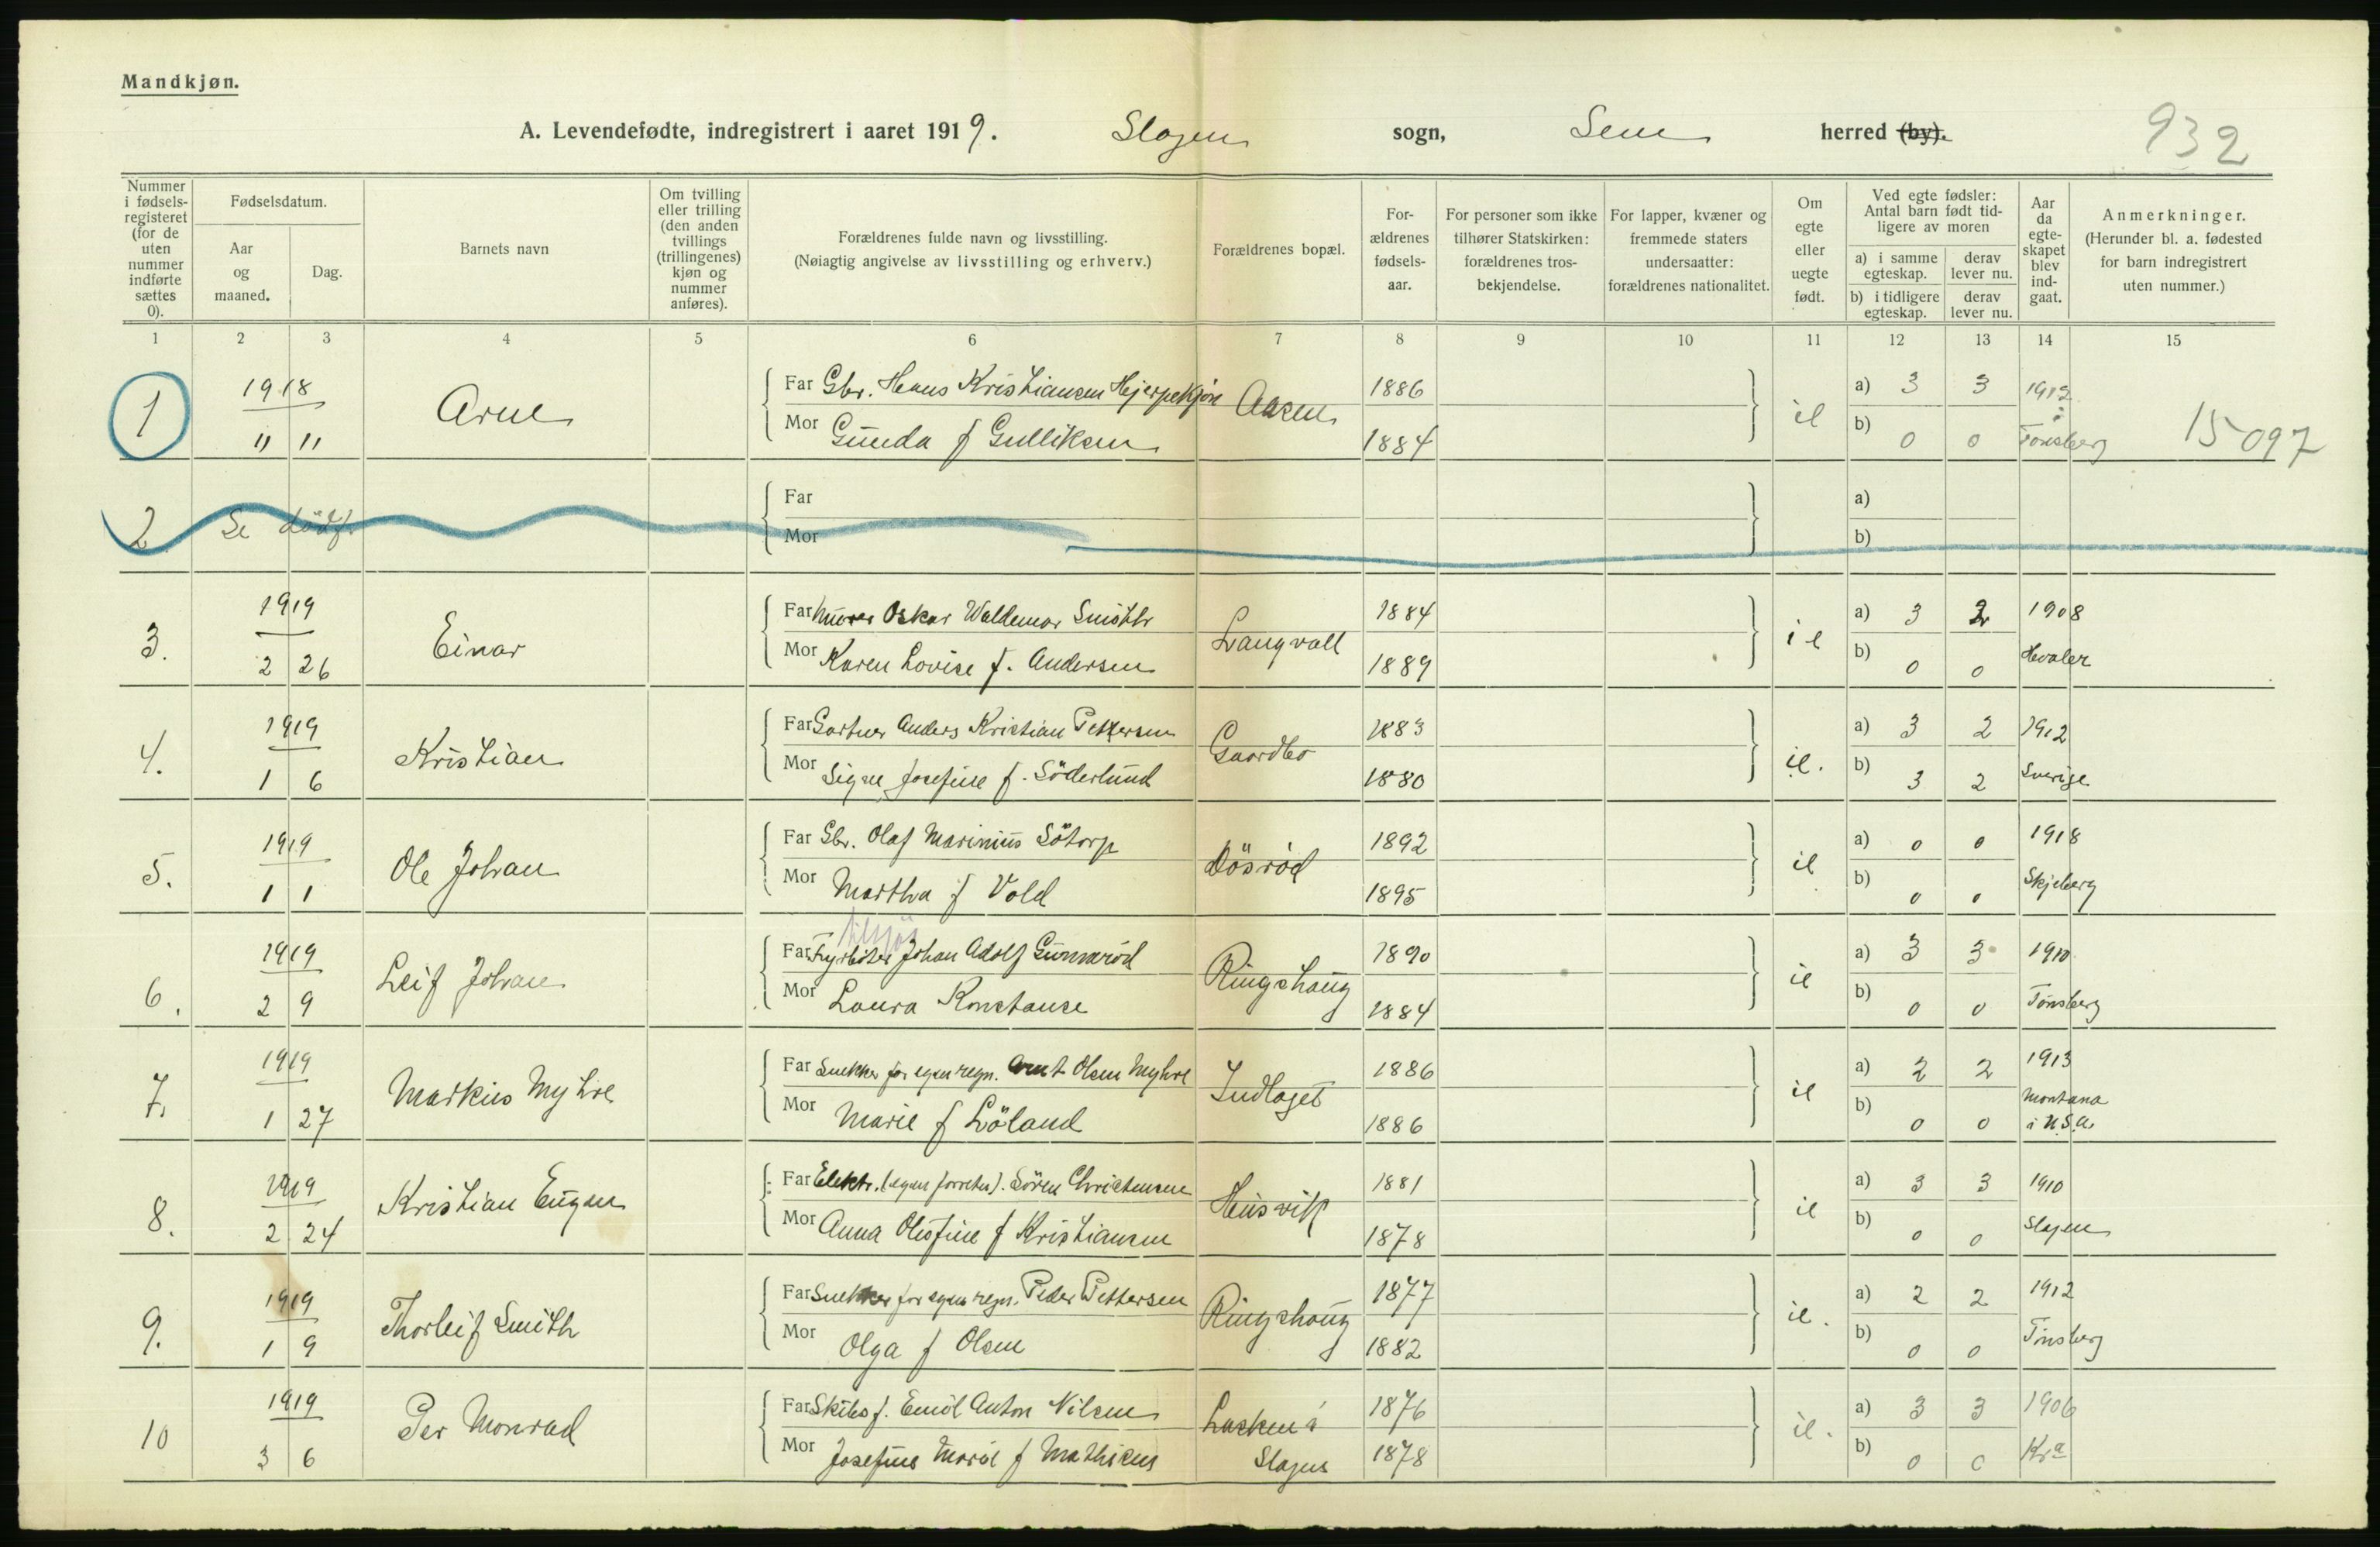 Mandkjøn.
A. Levendefødte, indregistrert i aaret 1919. Slagen sogn, Sem herred (by). 932
Nummer i fødsels-registeret (for de uten nummer indførte sættes 0).
Fødselsdatum.
Aar og maaned.
Dag.
Barnets navn
Om tvilling eller trilling (den anden tvillings (trillingenes) kjøn og nummer anføres).
Forældrenes fulde navn og livsstilling.
(Nøiagtig angivelse av livsstilling og erhverv.)
Forældrenes bopæl.
For-ældrenes fødsels-aar.
For personer som ikke tilhører Statskirken: forældrenes tros-bekjendelse.
For lapper, kvæner og fremmede staters undersaatter: forældrenes nationalitet.
Om egte eller uegte født.
Ved egte fødsler: Antal barn født tid-ligere av moren
a) i samme egteskap. derav lever nu.
b) i tidligere egteskap. derav lever nu.
Aar da egte-skapet blev ind-gaat.
Anmerkninger.
(Herunder bl. a. fødested for barn indregistrert uten nummer.)
1 2 3 4 5 6 7 8 9 10 11 12 13 14 15
1 1918 Arne Far Gbr. Hans Kristiansen Hjerpekjøn Aasen 1886 il a) 3 3 1912
11 11 Mor Gunda f Gulliksen 1884 b) 0 0 Tønsberg 15097
2 Se dödf. Far a)
Mor b)
3. 1919 Einar Far Murer Oskar Waldemar Smith Langvall 1884 il a) 3 2 1908
2 26 Mor Karen Lovise f. Andersen 1889 b) 0 0 Hvaler
4. 1919 Kristian Far Gartner Anders Kristian Pettersen Gaardbo 1883 il. a) 3 2 1912
1 6 Mor Signe Josefine f. Söderlund 1880 b) 3 2 Sverige
5. 1919 Ole Johan Far Gbr. Olaf Marinius Sötorp Dösröd 1892 il a) 0 0 1918
1 1 Mor Martha f Vold 1895 b) 0 0 Skjeberg
tilsjös
6. 1919 Leif Johan Far Fyrböter Johan Adolf Gunneröd Ringshaug 1890 il a) 3 3 1910
2 9 Mor Laura Konstanse 1884 b) 0 0 Tønsberg
7. 1919 Markus Myhre Far Snekker for egen regn. Arnt Olsen Myhre Indlaget 1886 il a) 2 2 1913
1 27 Mor Marie f Löland 1886 b) 0 0 Montana i U.S.A.
8. 1919 Kristian Eugen Far Elektr. (egen forretn). Sören Christensen Husvik 1881 il a) 3 3 1910
2 24 Mor Anna Olefine f Kristiansen 1878 b) 0 0 Slagen
9. 1919 Thorleif Smith Far Snekker for egen regn. Peder Pettersen Ringshaug 1877 il. a) 2 2 1912
1 9 Mor Olga f Olsen 1882 b) 0 0 Tönsberg
10 1919 Per Monrad Far Skibsf. Emil Anton Nilsen Lasken i 1876 il. a) 3 3 1906
3 6 Mor Josefine Marie f Mathisen Slagen 1878 b) 0 0 Kra